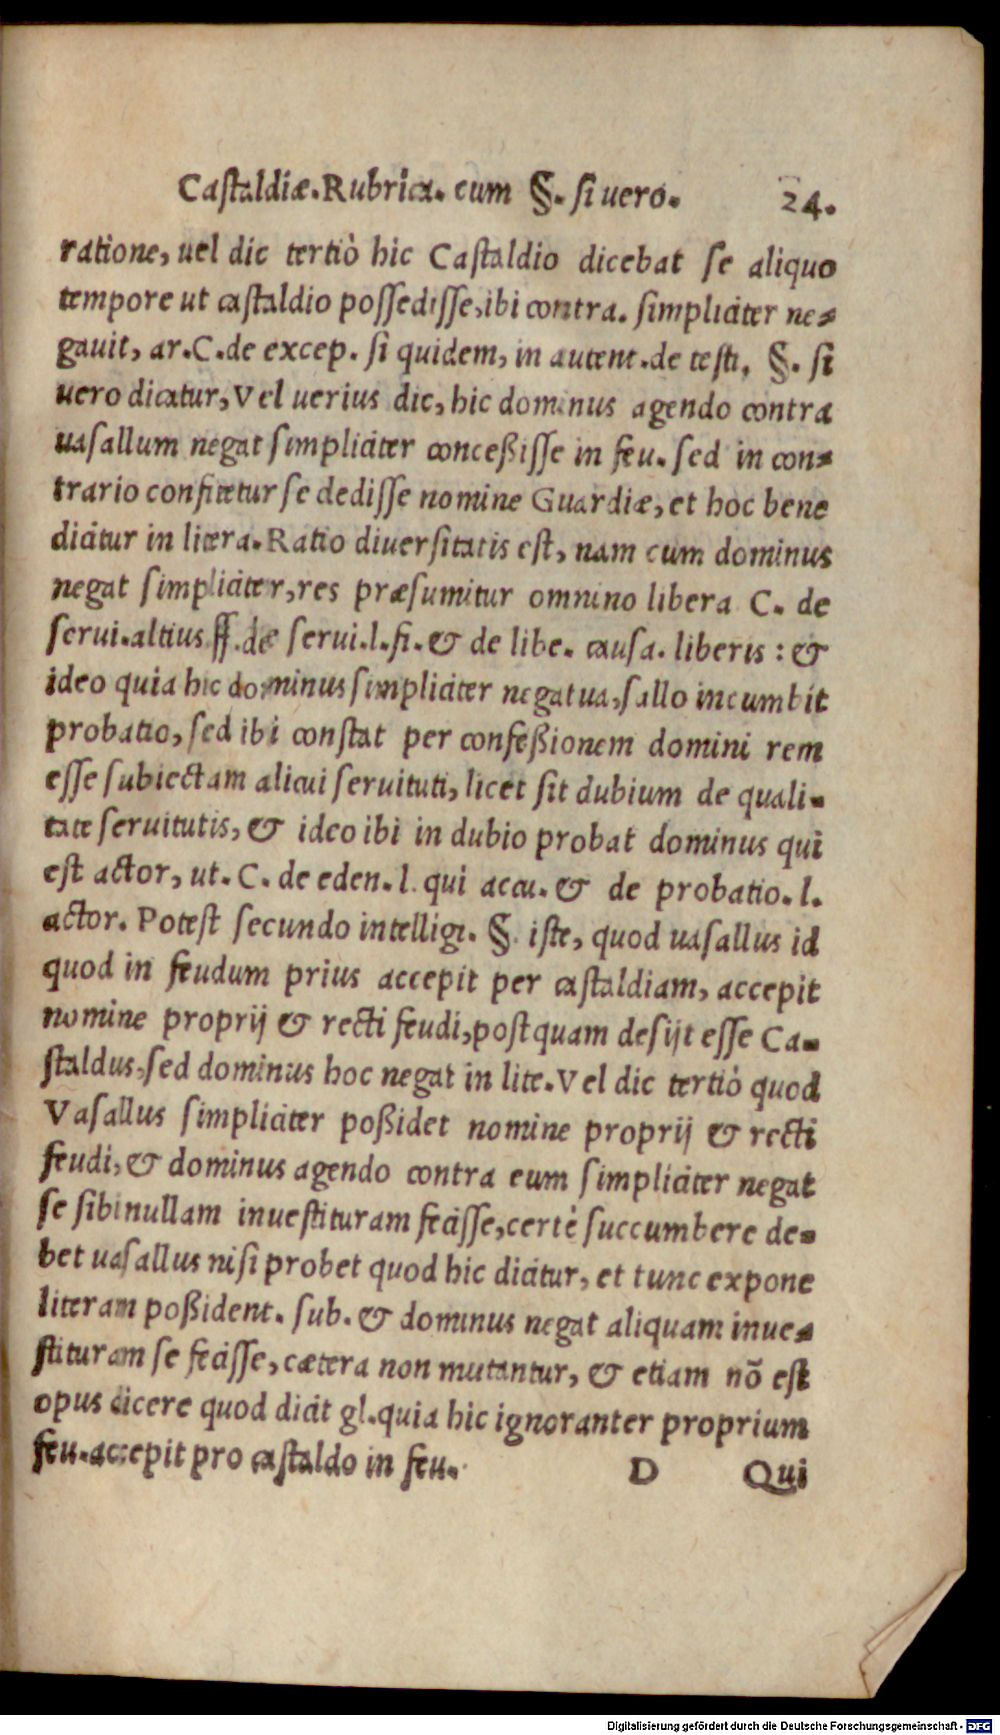 Castaldiæ. Rubrica. cum §. si uero. 24.
ratione, uel dic tertiò hic Castaldio dicebat se aliquo
tempore ut castaldio possedisse, ibi contra. simpliciter ne-
gauit, ar. C. de excep. si quidem, in autent. de testi. §. si
uero dicatur, Vel uerius dic, hic dominus agendo contra
uasallum negat simpliciter conceßisse in feu. sed in con-
trario confitetur se dedisse nomine Guardiæ, et hoc bene
dicitur in litera. Ratio diuersitatis est, nam cum dominus
negat simpliciter, res præsumitur omnino libera C. de
serui. altius ff. de serui. l. fi. & de libe. causa. liberis : &
ideo quia hic dominus simpliciter negat ua, sallo incumbit
probatio, sed ibi constat per confeßionem domini rem
esse subiectam alicui seruituti, licet sit dubium de quali-
tate seruitutis, & ideo ibi in dubio probat dominus qui
est actor, ut. C. de eden. l. qui accu. & de probatio. l.
actor. Potest secundo intelligi. §. iste, quod uasallus id
quod in feudum prius accepit per castaldiam, accepit
nomine proprij & recti feudi, postquam desijt esse Ca-
staldus, sed dominus hoc negat in lite. Vel dic tertiò quod
Vasallus simpliciter poßidet nomine proprij & recti
feudi, & dominus agendo contra eum simpliciter negat
se sibi nullam inuestituram fecisse, certè succumbere de-
bet uasallus nisi probet quod hic dicitur, et tunc expone
literam poßident. sub. & dominus negat aliquam inue-
stituram se fecisse, cætera non mutantur, & etiam nõ est
opus dicere quod dicit gl. quia hic ignoranter proprium
feu. accepit pro castaldo in feu.
D Qui
Digitalisierung gefördert durch die Deutsche Forschungsgemeinschaft - DFG